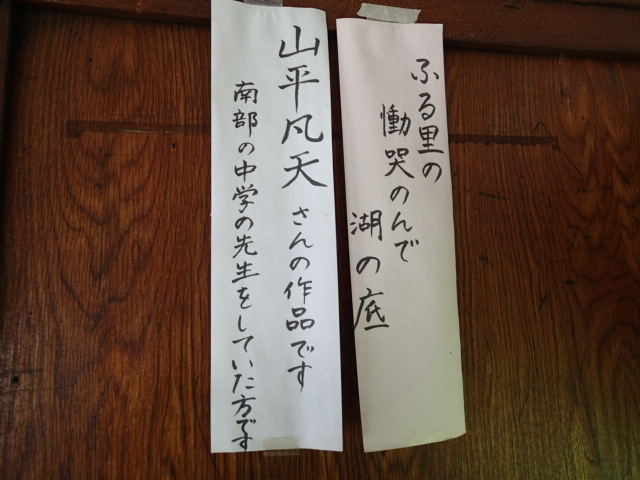 ふる里の
慟哭のんで
湖の底
山平凡天さんの作品です
南部の中学の先生をしていた方です